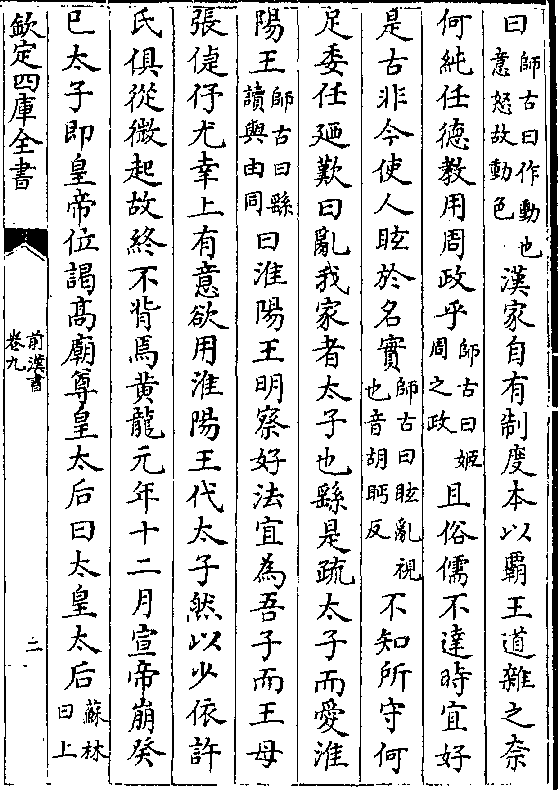 曰師古曰作動也意怒故動色漢家自有制度本以霸王道雜之奈
何純任德教用周政乎師古曰姬周之政且俗儒不達時宜好
是古非今使人眩於名實師古曰眩亂視也音胡眄反不知所守何
足委任廼歎曰亂我家者太子也繇是疏太子而愛淮
陽王師古曰繇讀與由同曰淮陽王明察好法宜為吾子而王母
張倢伃尤幸上有意欲用淮陽王代太子然以少依許
氏俱從微起故終不背焉黃龍元年十二月宣帝崩癸
巳太子即皇帝位謁高廟尊皇太后曰太皇太后蘇林曰上
欽定四庫全書
前漢書
卷九
二